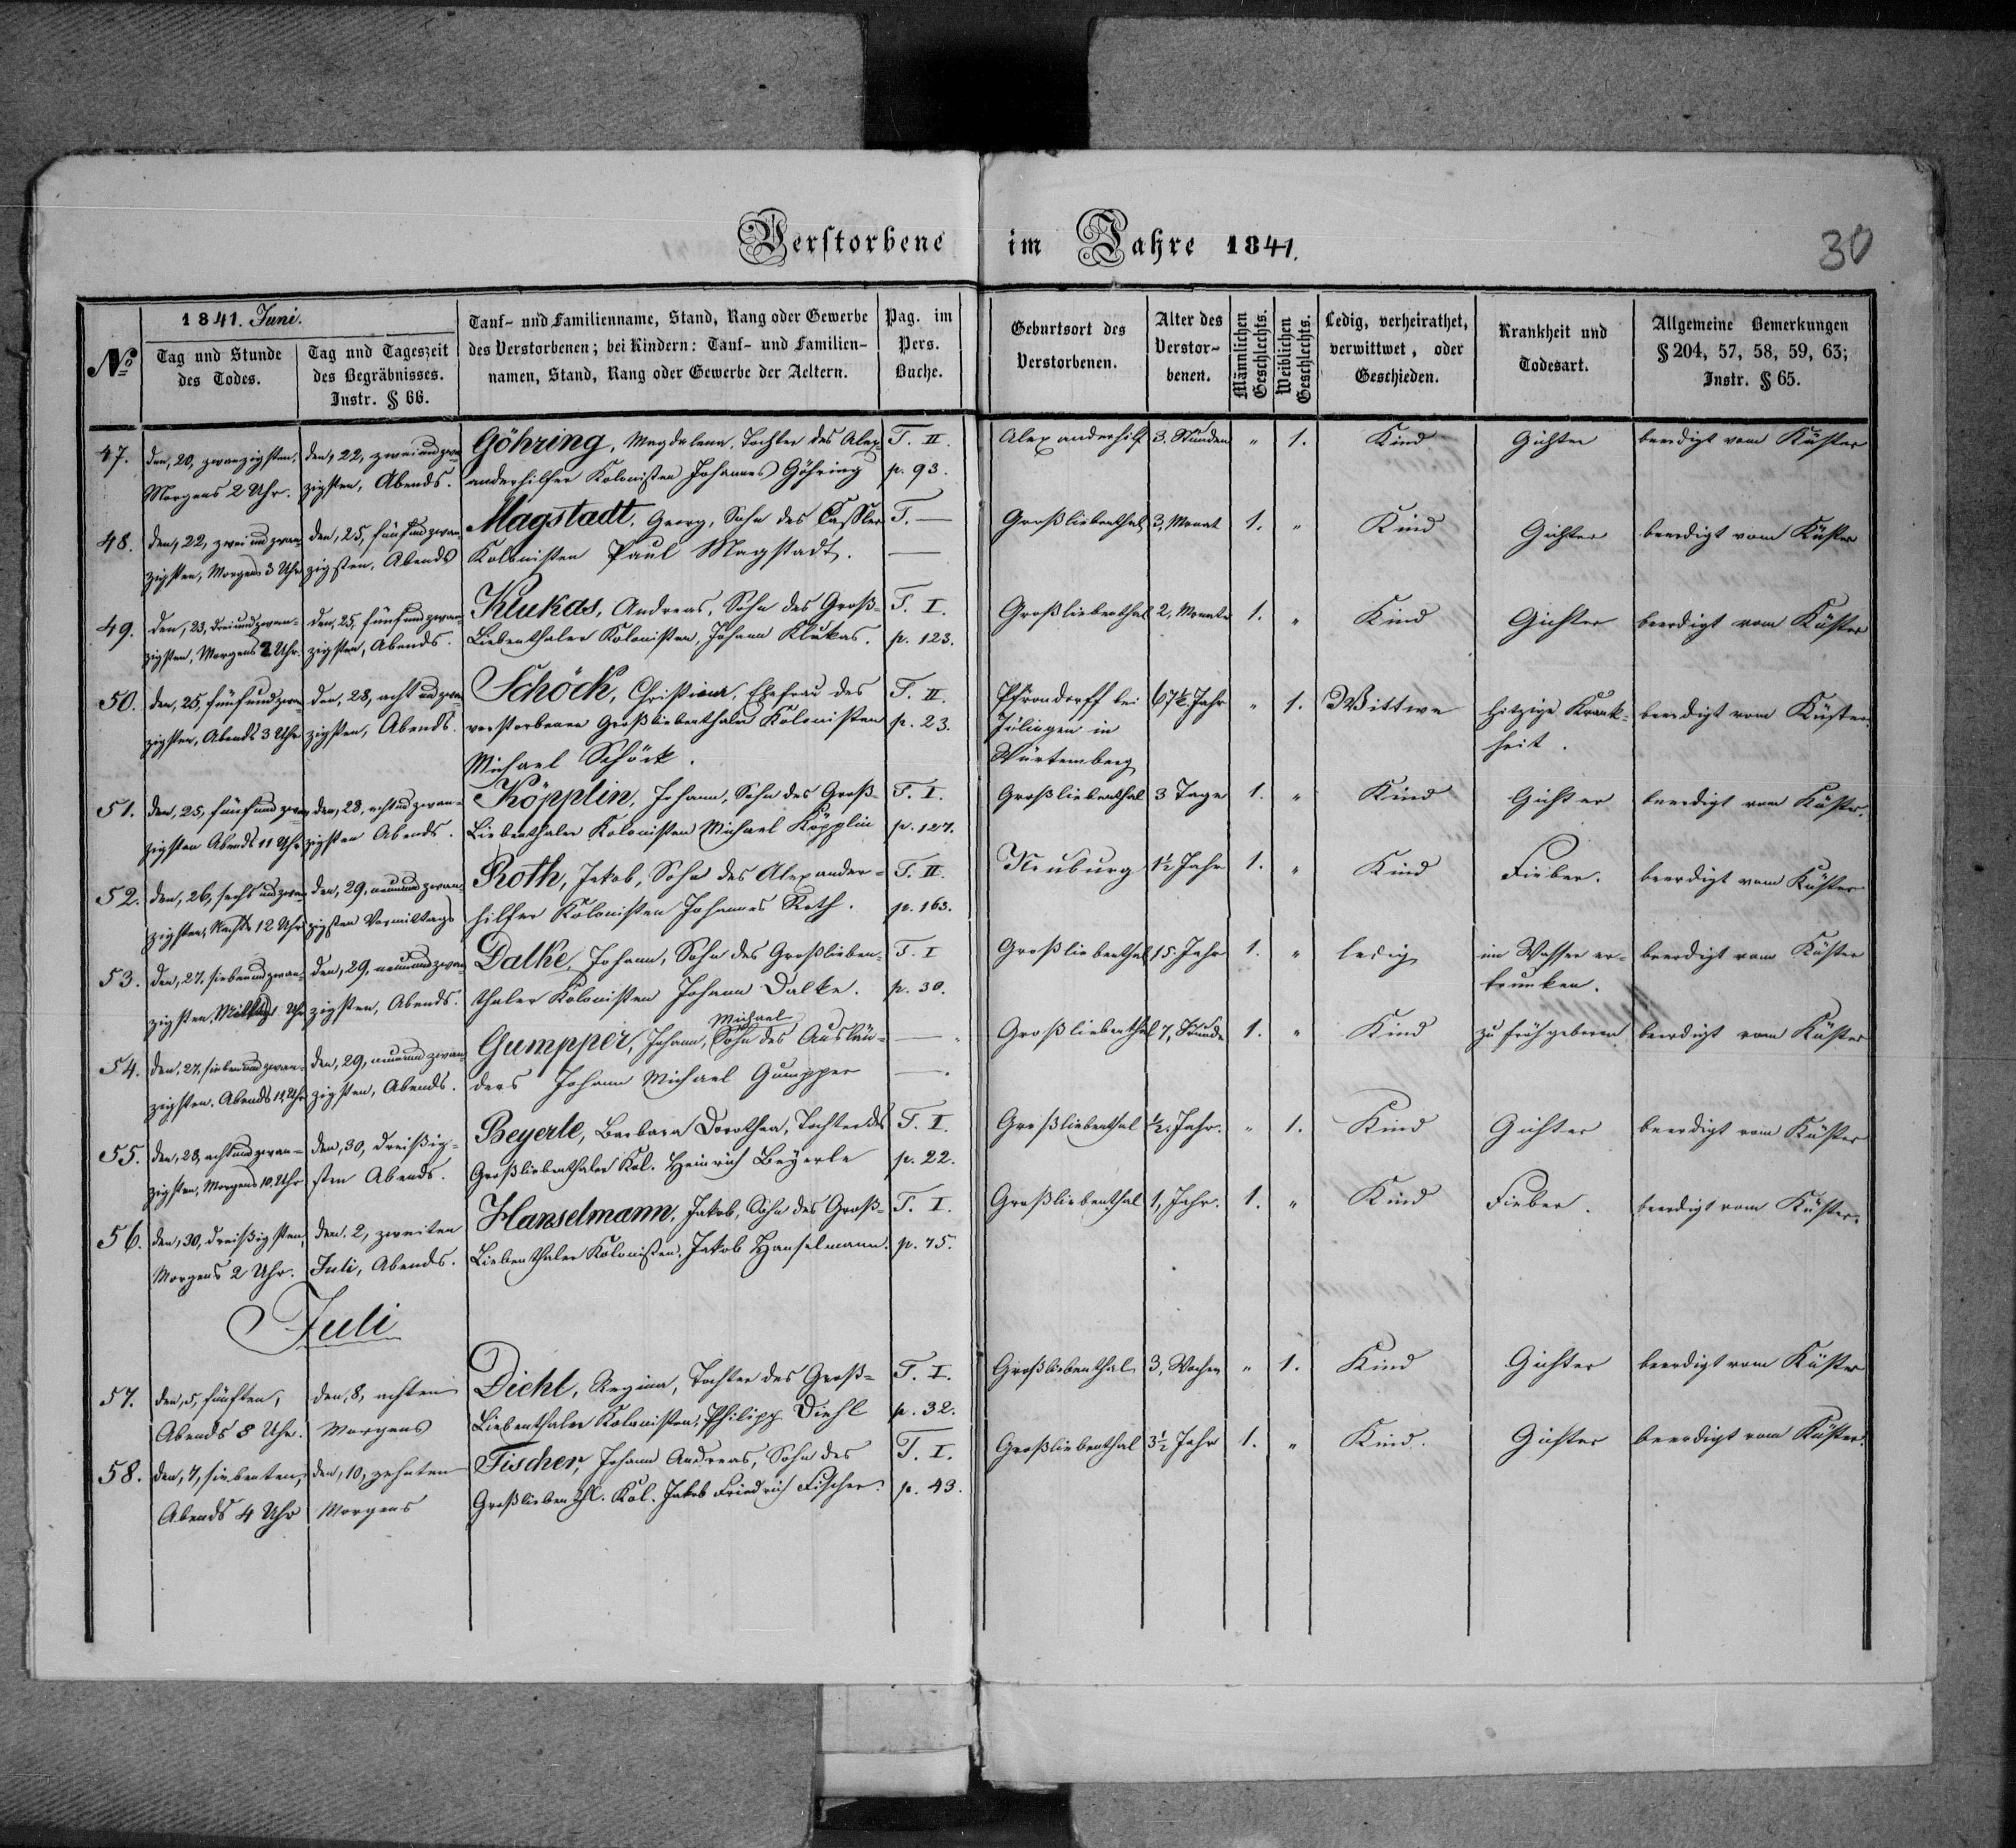 Verstorbene im Jahre 1841.
30
1841. Juni.
No
Tag und Stunde des Todes.
Tag und Tageszeit des Begräbnisses. Instr. § 66.
Tauf- und Familienname, Stand, Rang oder Gewerbe
des Verstorbenen; bei Kindern: Tauf- und Familien-
namen, Stand, Rang oder Gewerbe der Aeltern.
Pag. im Pers. Buche.
Geburtsort des Verstorbenen.
Alter des Verstor-benen.
Männlichen Geschlechts.
Weiblichen Geschlechts.
Ledig, verheirathet, verwittwet, oder Geschieden.
Krankheit und Todesart.
Allgemeine Bemerkungen § 204, 57, 58, 59, 63; Instr. § 65.
47. den, 20, zwanzigsten, den, 22, zweiundzwan- Göhring, Magdalena, Tochter des Alex- T. II. Alexanderhilf 3. Stunden " 1. Kind Gichter beerdigt vom Küster
Morgens 2 Uhr. zigsten, Abends. anderhilfer Kolonisten Johannes Göhring p. 93.
48. den, 22, zwei und zwan- den, 25, fünfundzwan- Magstadt, Georg, Sohn des Kassler T. — Großliebenthal 3, Monat 1. " Kind Gichter beerdigt vom Küster
zigsten, Morgens 3 Uhr zigsten, Abends Kolonisten Paul Magstadt. —
49. den, 23, dreiundzwan- den, 25, fünfundzwan- Klukas, Andreas, Sohn des Groß- T. I. Großliebenthal 2, Monate 1. " Kind Gichter beerdigt vom Küster
zigsten, Morgens 2 Uhr. zigsten, Abends. Liebenthaler Kolonisten, Johann Klukas. p. 123.
50. den, 25, fünfundzwan- den, 28, acht und zwan- Schöck, Christiana, Ehefrau des T. II. Pfrondorff bei 67½ Jahr " 1. Wittwe hitzige Krank- beerdigt vom Küster
zigsten, Abends 3 Uhr zigsten, Abends. verstorbenen Großliebenthaler Kolonisten p. 23. in heit.
Michael Schöck. Würtemberg
51. den, 25, fünfundzwan- den, 28, achtundzwan- Köpplin, Johann, Sohn des Groß- T. I. Großliebenthal 3 Tage 1. " Kind Gichter beerdigt vom Küster.
zigsten Abends 11 Uhr zigsten Abends. Liebenthaler Kolonisten Michael Köpplin p. 127.
52. den, 26, sechs und zwan- den, 29, neunundzwan- Roth, Jakob, Sohn des Alexander- T. II. Neuburg 1½ Jahr 1. " Kind Fieber. beerdigt vom Küster
zigsten, Nachts 12 Uhr zigsten Vormittags hilfer Kolonisten Johannes Roth. p. 163.
53. den, 27, siebenundzwan- den, 29, neunundzwan- Dalke, Johann, Sohn des Großlieben- T. I Großliebenthal 15. Jahr 1. " ledig im Wasser er- beerdigt vom Küster
zigsten, Mittags 1 Uhr zigsten, Abends. thaler Kolonisten Johann Dalke. p. 30. trunken.
Michael
54. den, 27, siebenundzwan- den, 29, neunundzwan- Gumpper, Johann, Sohn des Auslän- — Großliebenthal 7, Stunde 1. " Kind zu früh geboren beerdigt vom Küster
zigsten. Abends 11, Uhr zigsten, Abends. ders Johann Michael Gumpper —.
55. den, 28, achtundzwan- den, 30, dreißig- Beyerle, Barbara Dorothea, Tochter des T. I. Großliebenthal ½. Jahr. " 1. Kind Gichter beerdigt vom Küster
zigsten, Morgens 10, Uhr sten Abends. Großliebenthaler Kol. Heinrich Beyerle p. 22.
56. den, 30, dreißigsten, den. 2, zweiten Hanselmann, Jakob, Sohn des Groß- T. I. Großliebenthal 1, Jahr. 1. " Kind Fieber. beerdigt vom Küster.
Morgens 2 Uhr. Juli, Abends. Liebenthaler Kolonisten, Jakob Hanselmann. p. 75.
Juli
57. den, 5, fünften, den, 8, achten Diehl, Regina, Tochter des Groß- T. I. Großliebenthal 3, Wochen " 1. Kind Gichter beerdigt vom Küster
Abends 8 Uhr. Morgens Liebenthaler Kolonisten, Philipp Diehl p. 32.
58. den, 7, siebenten, den, 10, zehnten Fischer, Johann Andreas, Sohn des T. I. Großliebenthal 3½ Jahr 1. " Kind. Gichter beerdigt vom Küster.
Abends 4 Uhr Morgens Großliebenthl. Kol. Jakob Friedrich Fischer. p. 43.